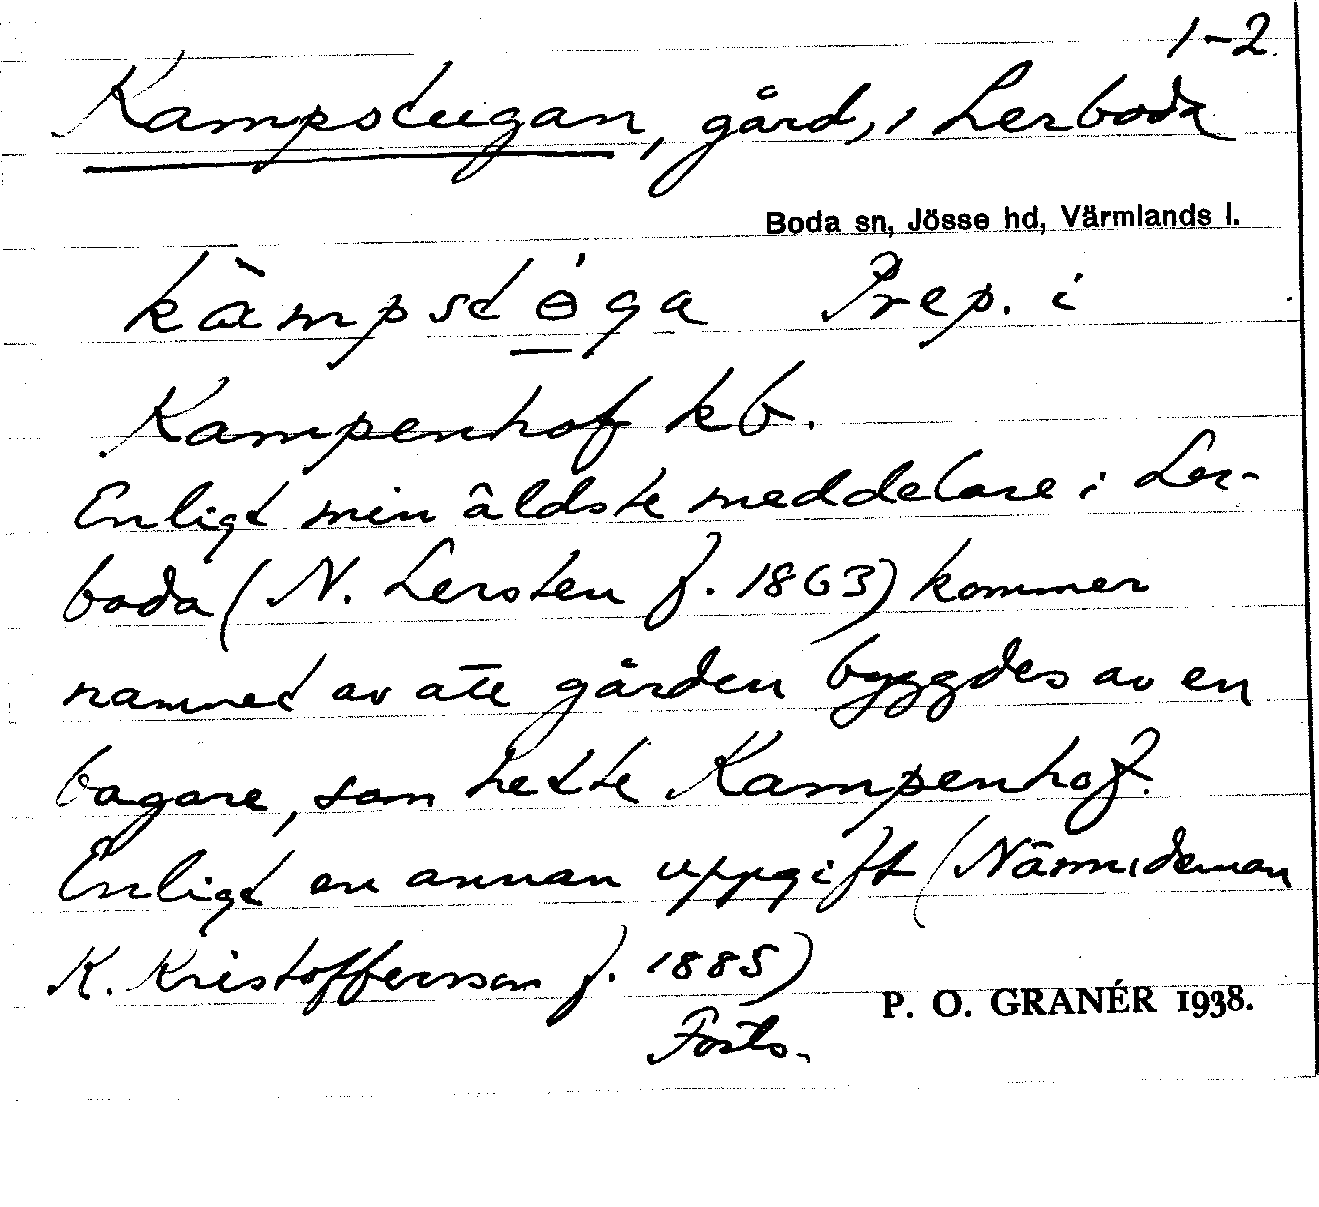 1-2.
Kampstugan, gård, i Lerboda
Boda sn, Jösse hd, Värmlands l.
kàmpstɵ́ga Prep. i
Kampenhof kb.
Enligt min äldste meddelare i Ler-
boda (N. Lersten f. 1863) kommer
namnet av att gården byggdes av en
bagare, som hette Kampenhof.
Enligt en annan uppgift (Nämndeman
K. Kristofferson f. 1885)
P. O. GRANÉR 1938.
Forts.